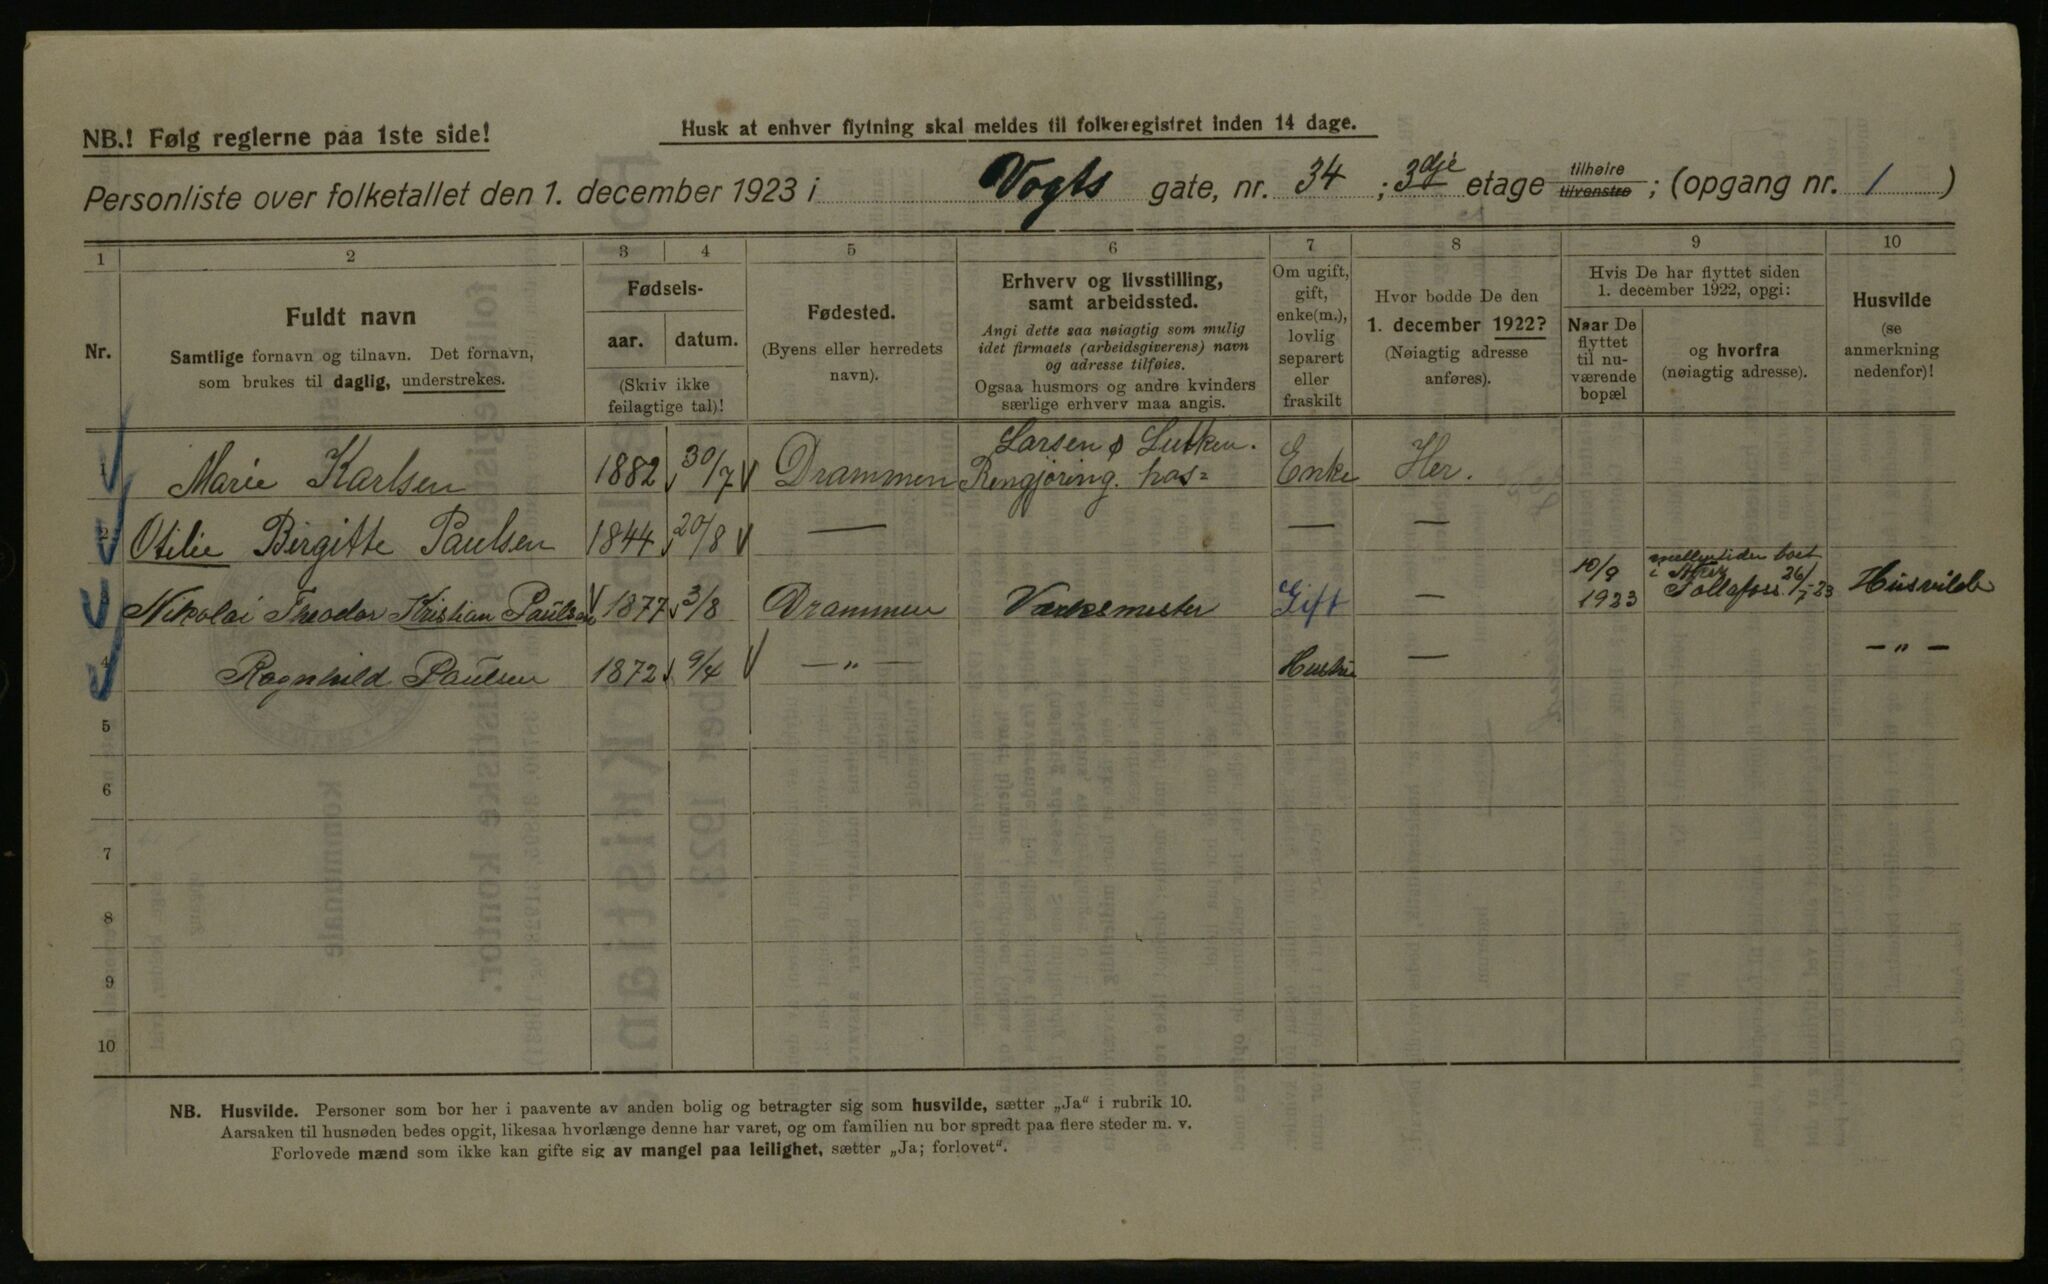 NB.! Følg reglerne paa 1ste side!
Husk at enhver flytning skal meldes til folkeregistret inden 14 dage.
Personliste over folketallet den 1. december 1923 i Vogts gate, nr. 34 ; 3dje etage tilhøire tilvenstre ; (opgang nr. 1 )
1 2 3 4 5 6 7 8 9 10
Nr.
Fuldt navn
Samtlige fornavn og tilnavn. Det fornavn,
som brukes til daglig, understrekes.
Fødsels-
aar. datum.
(Skriv ikke
feilagtige tal)!
Fødested.
(Byens eller herredets
navn).
Erhverv og livsstilling,
samt arbeidssted.
Angi dette saa nøiagtig som mulig
idet firmaets (arbeidsgiverens) navn
og adresse tilføies.
Ogsaa husmors og andre kvinders
særlige erhverv maa angis.
Om ugift,
gift,
enke(m.),
lovlig
separert
eller
fraskilt
Hvor bodde De den
1. december 1922?
(Nøiagtig adresse
anføres).
Hvis De har flyttet siden
1. december 1922, opgi:
Naar De
flyttet
til nu-
værende
bopæl
og hvorfra
(nøiagtig adresse).
Husvilde
(se
anmerkning
nedenfor)!
Larsen & Lutken.
1 Marie Karlsen 1882 30/7 Drammen Rengjøring hos= Enke Her.
2 Otilie Birgitte Paulsen 1844 20/8 — — —
10/9 mellemtiden boet
i 26/7-23
3 Nikolai Theodor Kristian Paulsen 1877 3/8 Drammen Værksmester Gift — 1923 Tollefoss Husvilde
4 Ragnhild Paulsen 1872 9/4 —„— Hustru — —„—
5
6
7
8
9
10
NB. Husvilde. Personer som bor her i paavente av anden bolig og betragter sig som husvilde, sætter „Ja“ i rubrik 10.
Aarsaken til husnøden bedes opgit, likesaa hvorlænge denne har varet, og om familien nu bor spredt paa flere steder m. v.
Forlovede mænd som ikke kan gifte sig av mangel paa leilighet, sætter „Ja; forlovet“.